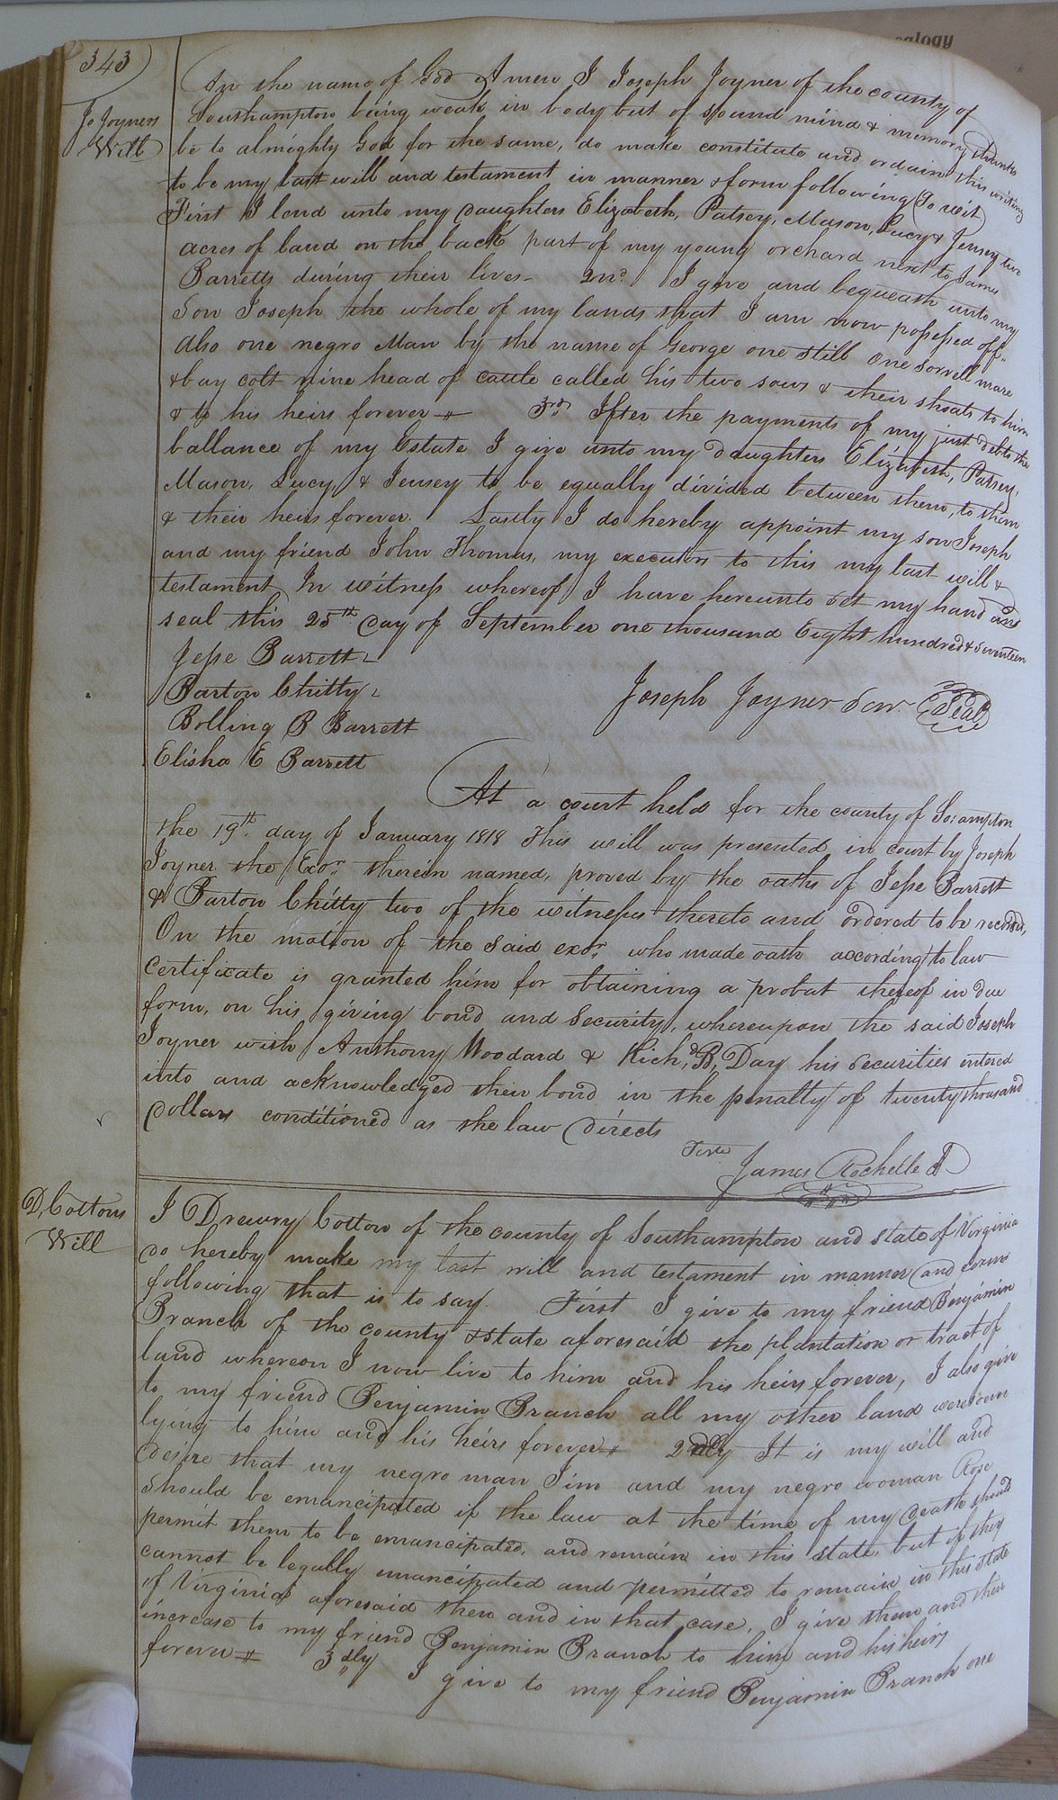 343
Jo Joyners
Will
In the name of God Amen I Joseph Joyner of the county of
Southampton being weak in body but of sound mind & memory thanks
be to almighty God for the same, do make constitute and ordain this writing
to be my last will and testament in manner & form following (To wit)
First I lend unto my daughters Elizabeth, Patsey, Mason, Lucy & Jensey two
acres of land on the back part of my young orchard next to James
Barretts during their lives - 2nd. I give and bequeath unto my
Son Joseph the whole of my lands that I am now possessed off.
Also one negro Man by the name of George one still One Sorrell mare
& bay colt nine head of cattle called his two sows & their shoats to him
& to his heirs forever 3rd. After the payments of my just debts the
ballance of my Estate I give unto my daughters Elizabeth, Patsey,
Mason, Lucy & Jensey to be equally divided between them, to them
& their heirs forever. Lastly I do hereby appoint my son Joseph
and my friend John Thomas, my executors to this my last will &
testament In witness whereof I have hereunto set my hand and
seal this 25th day of September one thousand Eight hundred & seventeen
Jesse Barrett
Barton Chitty
Joseph Joyner Senr. Seal
Bolling B Barrett
Elisha E Barrett
At a court held for the county of So:ampton
the 19th. day of January 1818 This will was presented in court by Joseph
Joyner the Exor. therein named, proved by the oaths of Jesse Barrett
& Barton Chitty two of the witnesses thereto and ordered to be recorded,
On the motion of the said exor. who made oath according to law
Certificate is granted him for obtaining a probat thereof in due
form, on his giving bond and Security, whereupon the said Joseph
Joyner with Anthony Woodard & Richd. B. Day his Securities entered
into and acknowledged their bond in the penalty of twenty thousand
dollars conditioned as the law directs
Teste
James Rochelle
D. Cottons
Will
I Drewry Cotton of the county of Southampton and state of Virginia
do hereby make my last will and testament in manner and form
following that is to say. First I give to my friend Benjamin
Branch of the county & state aforesaid the plantation or tract of
land whereon I now live to him and his heirs forever, I also give
to my friend Benjamin Branch all my other land
lying to him and his heirs forever 2dly It is my will and
desire that my negro man Jim and my negro woman Rose
should be emancipated if the law at the time of my death should
permit them to be emancipated, and remain in this state, but if they
cannot be legally emancipated and permitted to remain in this state
of Virginia aforesaid then and in that case, I give them and their
increase to my friend Benjamin Branch to him and his heirs
forever 3dly I give to my friend Benjamin Branch one